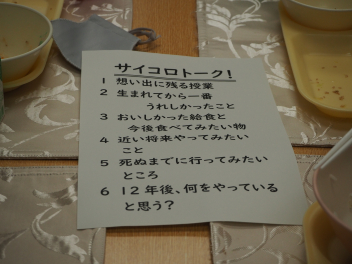 サイコロトーク!
1 想い出に残る授業
2 生まれてから一番
うれしかったこと
3 おいしかった給食と
今後食べてみたい物
4 近い将来やってみたい
こと
5 死ぬまでに行ってみたい
ところ
6 12年後、何をやっている
と思う?